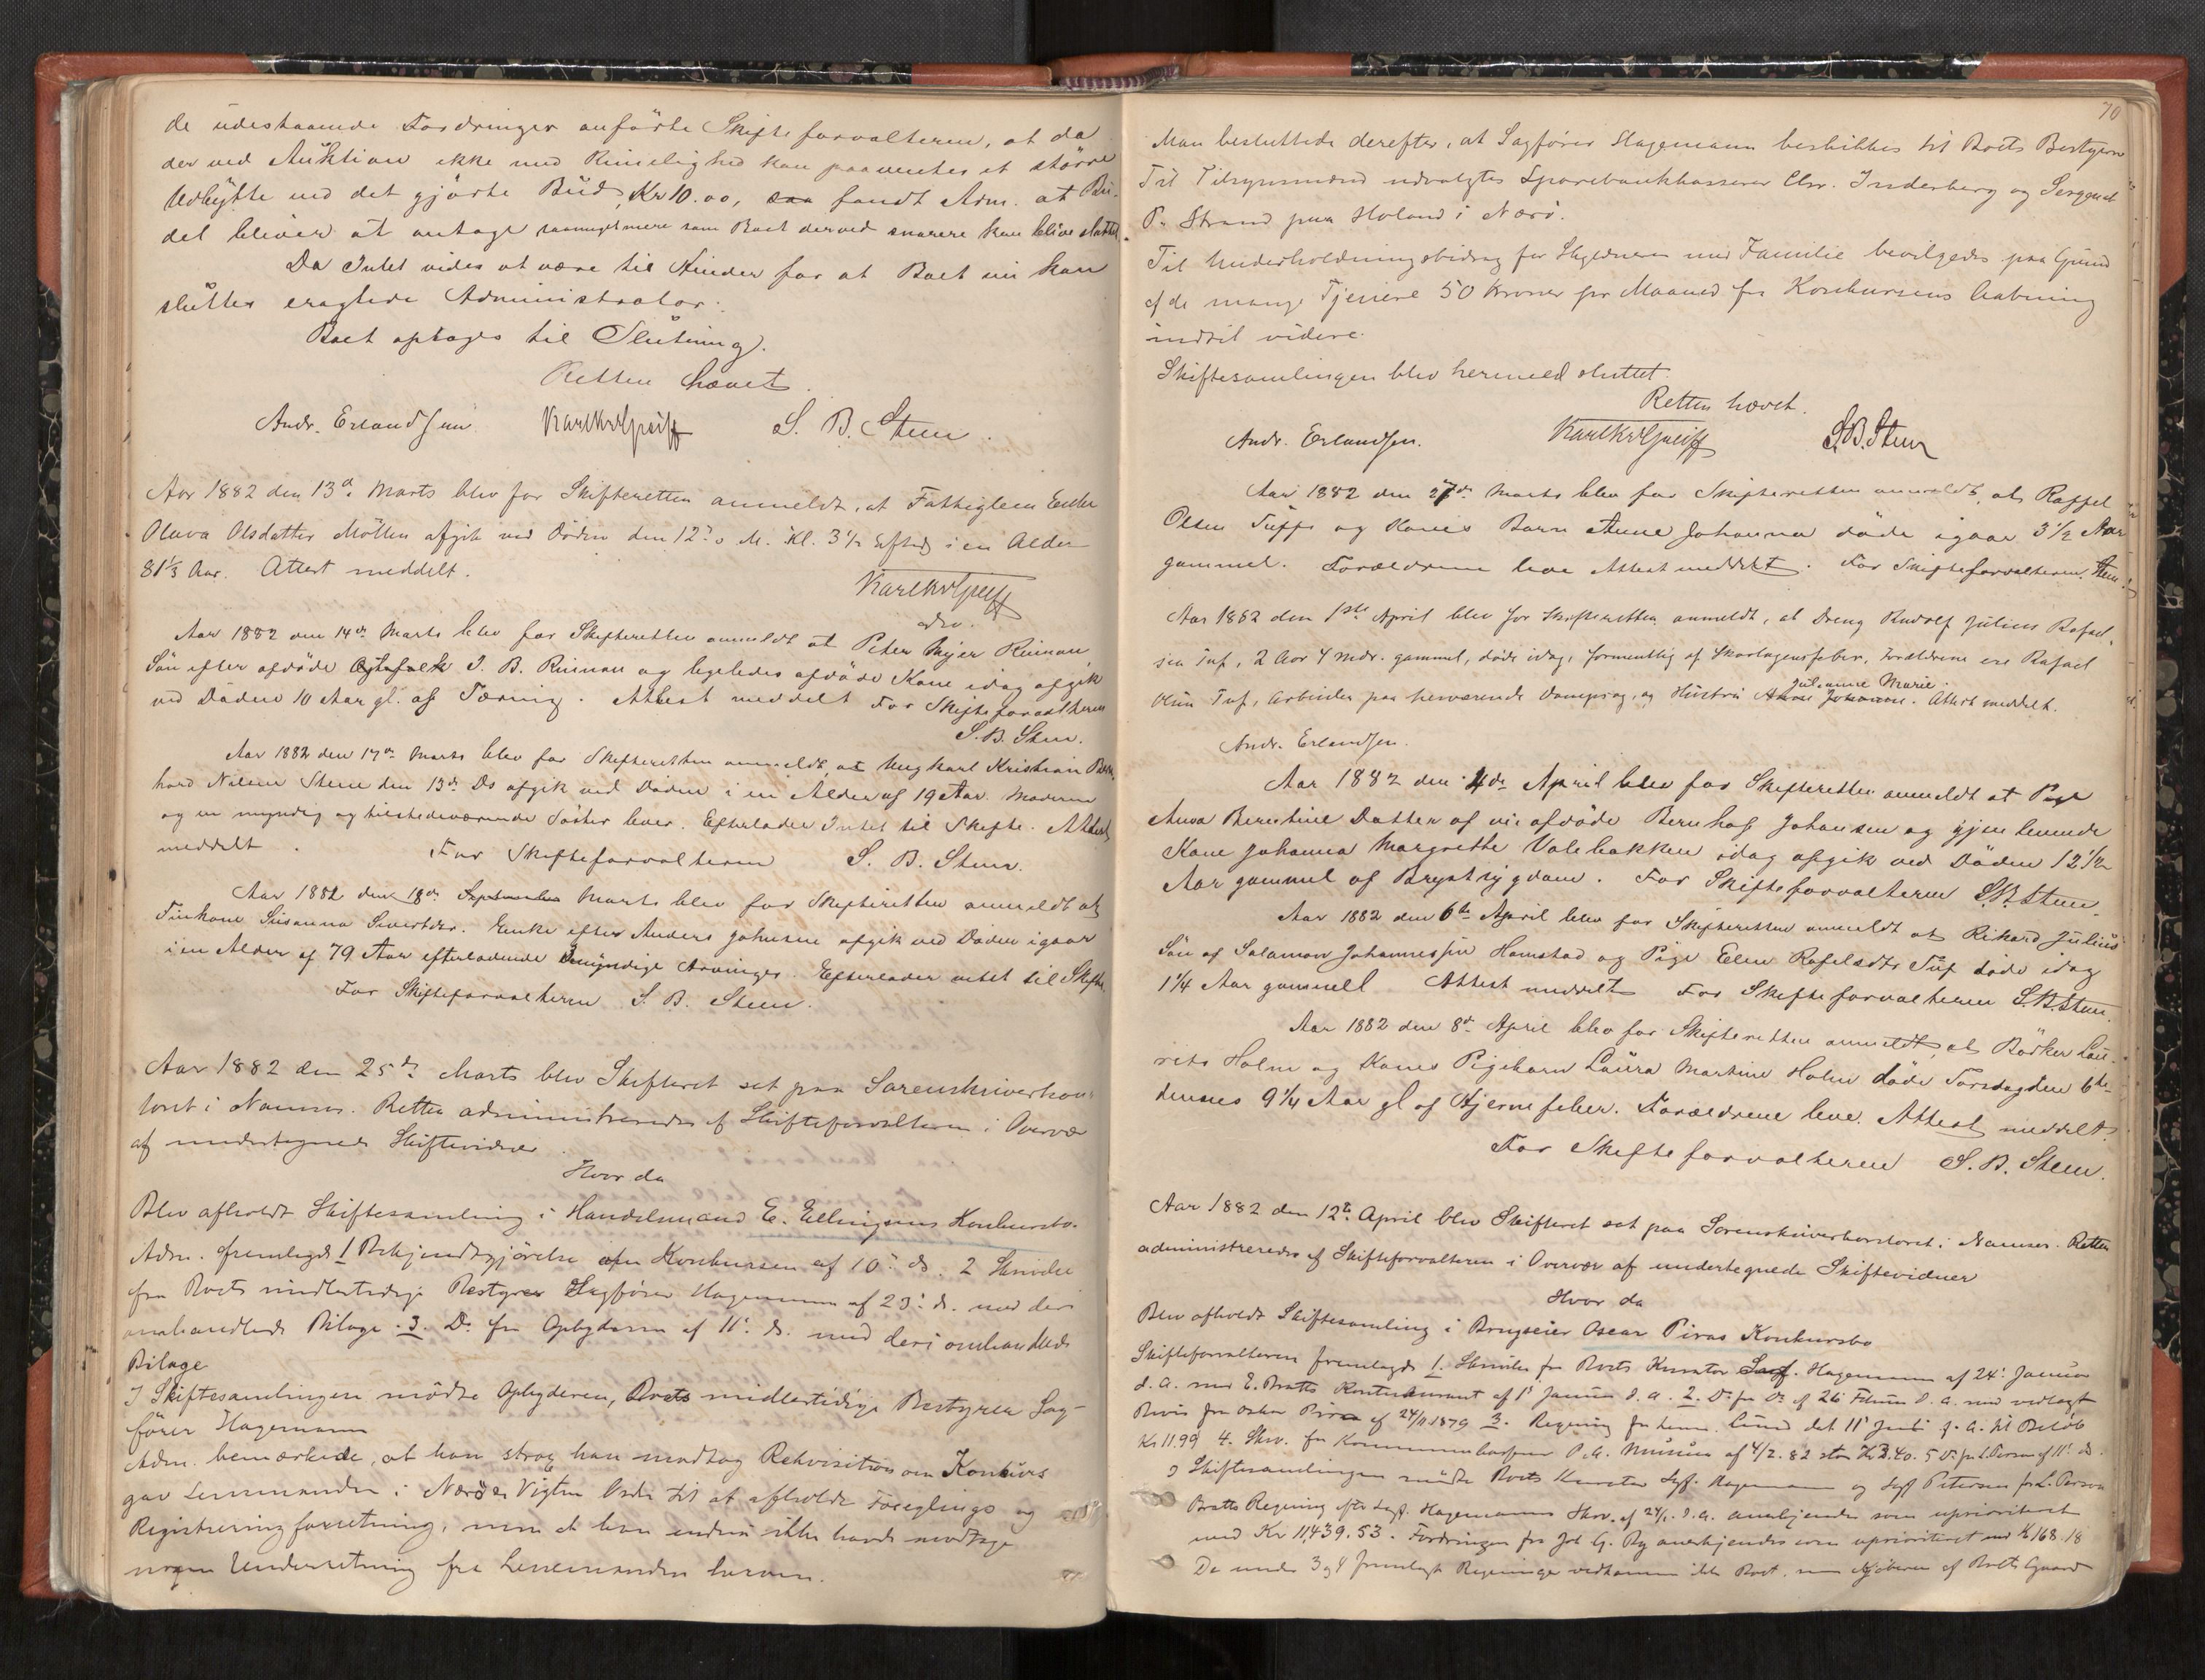 de udestaaende Fordringer anførte Skifteforvalteren, at da
der ved Auktion ikke med Rimelighed kan paaventes et større
Udbytte end det gjorte Bud, Kr 10.00, fandt Adm. at Bu-
det bliver at antage saameget mere som Boet derved snarere kan blive sluttet
Da Intet vides at være til Hinder for at Boet nu kan
sluttes eragtede Administrator:
Boet optages til Slutning.
Retten hævet.
Andr. Erlandsen S. B. Steen.
Aar 1882 den 13de Marts blev for Skifteretten anmeldt, at Fattiglem Enke
Olava Olsdatter Möllen afgik ved Döden den 12te d. M. Kl. 3½ Eftmd i en Alder
81⅓ Aar. Attest meddelt.
Aar 1882 den 14de Marts blev for Skifteretten anmeldt at Peter Mejer Rinnan
Sön efter afdöde J. B. Rinnan og ligeledes afdöde Kone idag afgik
ved Döden 10 Aar gl. af Tæring. Attest meddelt For Skifteforvalteren
S. B. Steen.
Aar 1882 den 17de Marts blev for Skifteretten anmeldt, at Ungkarl Kristian Bern-
hard Nilsen Steen den 13de Ds afgik ved Döden i en Alder af 19 Aar. Moderen
og en myndig og tilstedeværende Söster lever. Efterlader Intet til Skifte. Attest
meddelt. For Skifteforvalteren S. B. Steen.
Aar 1882 den 18de September Marts blev for Skifteretten anmeldt at
Susanna Sivertdr. Enke efter Anders Johnsen afgik ved Döden igaar
i en Alder af 79 Aar efterladende myndige Arvinger. Efterlader intet til Skifte.
For Skifteforvalteren S. B. Steen.
Aar 1882 den 25de Marts blev Skifteret sat paa Sorenskriverkon-
toret i Namsos. Retten administreredes af Skifteforvalteren i Overvær
af undertegnede Skiftevidner
Hvor da
Blev afholdt Skiftesamling i Handelsmand E. Ellingsens Konkursbo.
Adm. fremlagde 1 Bekjendtgjörelse om Konkursen af 10de ds. 2 Skrivelse
fra Boets midlertidige Bestyrer Sagförer Hagemann af 23de ds. med deri
omhandlede Bilage. 3. Do. fra Opbyderen af 11te ds. med deri omhandlede
Bilage
I Skiftesamlingen mödte Opbyderen, Boets midlertidige Bestyrer Sag-
förer Hagemann
Adm. bemærkede, at han strax han modtog Rekvisition om Konkurs
gav Lensmanden i Nærö & Vigten Ordre til at afholde Foreglings og
Registreringsforretning, men at han endnu ikke havde modtaget
nogen Underretning fra Lensmanden herom.
70
Man besluttede derefter, at Sagfører Hagemann beskikkes til Boets Bestyrer
Til Tilsynsmænd udvalgtes Sparebankkasserer Chr. Inderberg og Sergeant
P. Strand paa Holand i Nærö.
Til Underholdningsbidrag for Skyldneren med Familie bevilgedes paa Grund
af de mange Tjenere 50 Kroner pr Maaned fra Konkursens Aabning
indtil videre.
Skiftesamlingen blev hermed sluttet.
Retten hævet.
Andr. Erlandsen. S.B. Steen
Aar 1882 den 27de Marts blev for Skifteretten anmeldt, at Raffel
Olsen Tuffs og Kones Barn Anne Johanna döde igaar 3½ Aar
gammel. Forældrene leve Attest meddelt. For Skifteforvalteren. Steen.
Aar 1882 den 1ste April blev for Skifteretten anmeldt, at Dreng Rudolf Julius Rafael-
sen Tuf, 2 Aar 4 Mdr. gammel, döde idag, formentlig af Skarlagensfeber. Forældrene ere Rafael
Olsen Tuf, Arbeider paa herværende Dampsag, og Hustru Anne Johanna Julianne Marie. Attest meddelt.
Andr. Erlandsen.
Aar 1882 den 4de April blev for Skifteretten anmeldt at Pige
Anna Berntine Datter af nu afdöde Johansen og gjenlevende
Kone Johanna Margrethe Valebakken idag afgik ved Döden 12½
Aar gammel af Brystsygdom. For Skifteforvalteren S.B. Steen.
Aar 1882 den 6te April blev for Skifteretten anmeldt at Rikard Julius
Sön af Salamon Johannessen Hamstad og Pige Elen Rafelsdtr Tuf döde idag
1¼ Aar gammell Attest meddelt For Skifteforvalteren S.B. Steen.
Aar 1882 den 8de April blev for Skifteretten anmeldt, at Bödker Lau-
rits Holm og Kones Pigebarn Laura Martine Holm döde Torsdag den 6te
dennes 9¼ Aar gl af Hjernefeber. Forældrene leve. Attest meddelt.
For Skifteforvalteren S. B. Steen.
Aar 1882 den 12te April blev Skifteret sat paa Sorenskriverkontoret i Namsos. Retten
administreredes af Skifteforvalteren i Overvær af undertegnede Skiftevidner
Hvor da
Blev afholdt Skiftesamling i Brugseier Oscar Piros Konkursbo
Skifteforvalteren fremlagde 1. Skrivelse fra Boets Kurator Sagf. Hagemann af 24de Januar
d. A. med E. Bratts Kontokurant af 1ste Januar d. A. 2. Do fra Do af 26 Februar d. A. med vedlagt
Bevis fra Oskar Piro af 24/11 1879 3. Regning fra Lund dat 11te Juli f. A. til Beløb
Kr 11.99 4. Skr. fra Kommunekasserer P. A. af 4/2. 82 stor Kr 2.40. 5 Do. fra L. Person af 11te ds.
I Skiftesamlingen mödte Boets Kurator Sagf. Hagemann og Sagf Petersen for L. Person
Bratts Regning efter Sagf. Hagemanns Skr. af 24/1. d. A. anerkjendes som uprioriteret
med Kr 11,439.53. Fordringen fra Joh G. By anerkjendes som uprioriteret med Kr 168.18
De under 3 og 4 fremlagte Regninger vedkommer ikke Boet, men Kjöberen af Boets Gaard